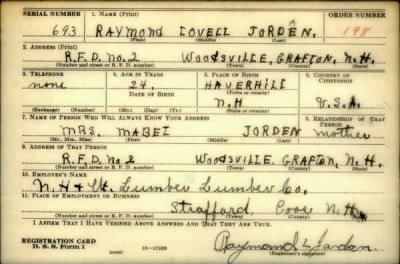 SERIAL NUMBER 1. NAME (Print) ORDER NUMBER
693 RAYMOND LOVELL JORDEN. 198
(First) (Middle) (Last)
2. ADDRESS (Print)
R.F.D. No. 2 WOODSVILLE, GRAFTON, N.H.
(Number and street or R. F. D. number) (Town) (County) (State)
3. TELEPHONE 4. AGE IN YEARS 5. PLACE OF BIRTH 6. COUNTRY OF CITIZENSHIP
none 24. HAVERHILL
DATE OF BIRTH (Town or county)
N.H U.S.A.
(Exchange) (Number) (Mo.) (Day) (Yr.) (State or country)
7. NAME OF PERSON WHO WILL ALWAYS KNOW YOUR ADDRESS 8. RELATIONSHIP OF THAT PERSON
MRS. MABEL JORDEN mother
(Mr., Mrs., Miss) (First) (Middle) (Last)
9. ADDRESS OF THAT PERSON
R.F.D. No 2 WOODSVILLE, GRAFTON, N.H.
(Number and street or R. F. D. number) (Town) (County) (State)
10. EMPLOYER'S NAME
N.H & Vt. Lumber Lumber Co.
11. PLACE OF EMPLOYMENT OR BUSINESS
Strafford, Coos N.H.
(Number and street or R. F. D. number) (Town) (County) (State)
I AFFIRM THAT I HAVE VERIFIED ABOVE ANSWERS AND THAT THEY ARE TRUE.
REGISTRATION CARD
D. S. S. Form 1 (over) 16—17105 Raymond L Jorden.
(Registrant's signature)